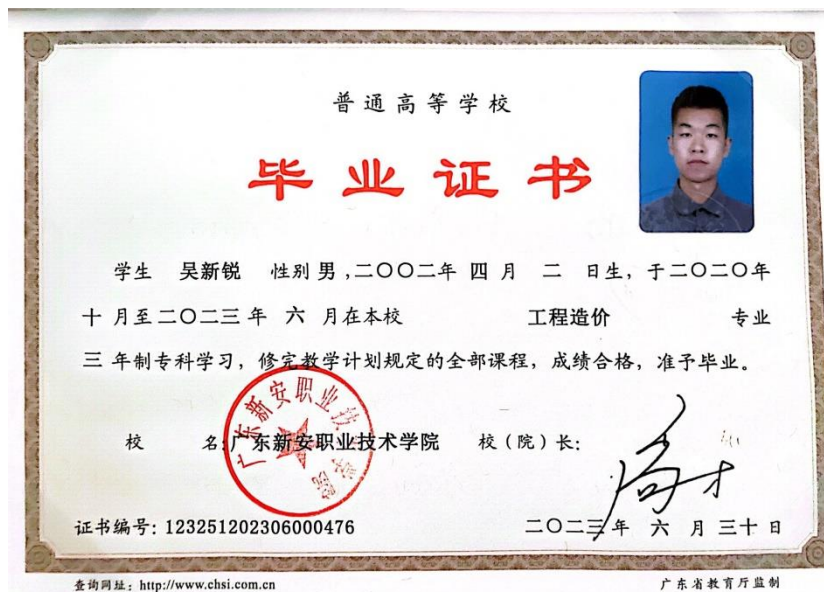 普通高等学校
毕业证书
学生 吴新锐 性别 男,二〇〇二年 四 月 二 日生,于二〇二〇年
十 月至二〇二三年 六 月在本校 工程造价 专业
三 年制专科学习,修完教学计划规定的全部课程,成绩合格,准予毕业。
校 名:广东新安职业技术学院 校(院)长:
广东新安职业技术学院
证书编号:123251202306000476 二〇二三年 六 月 三十 日
查询网址:http://www.chsi.com.cn 广东省教育厅监制